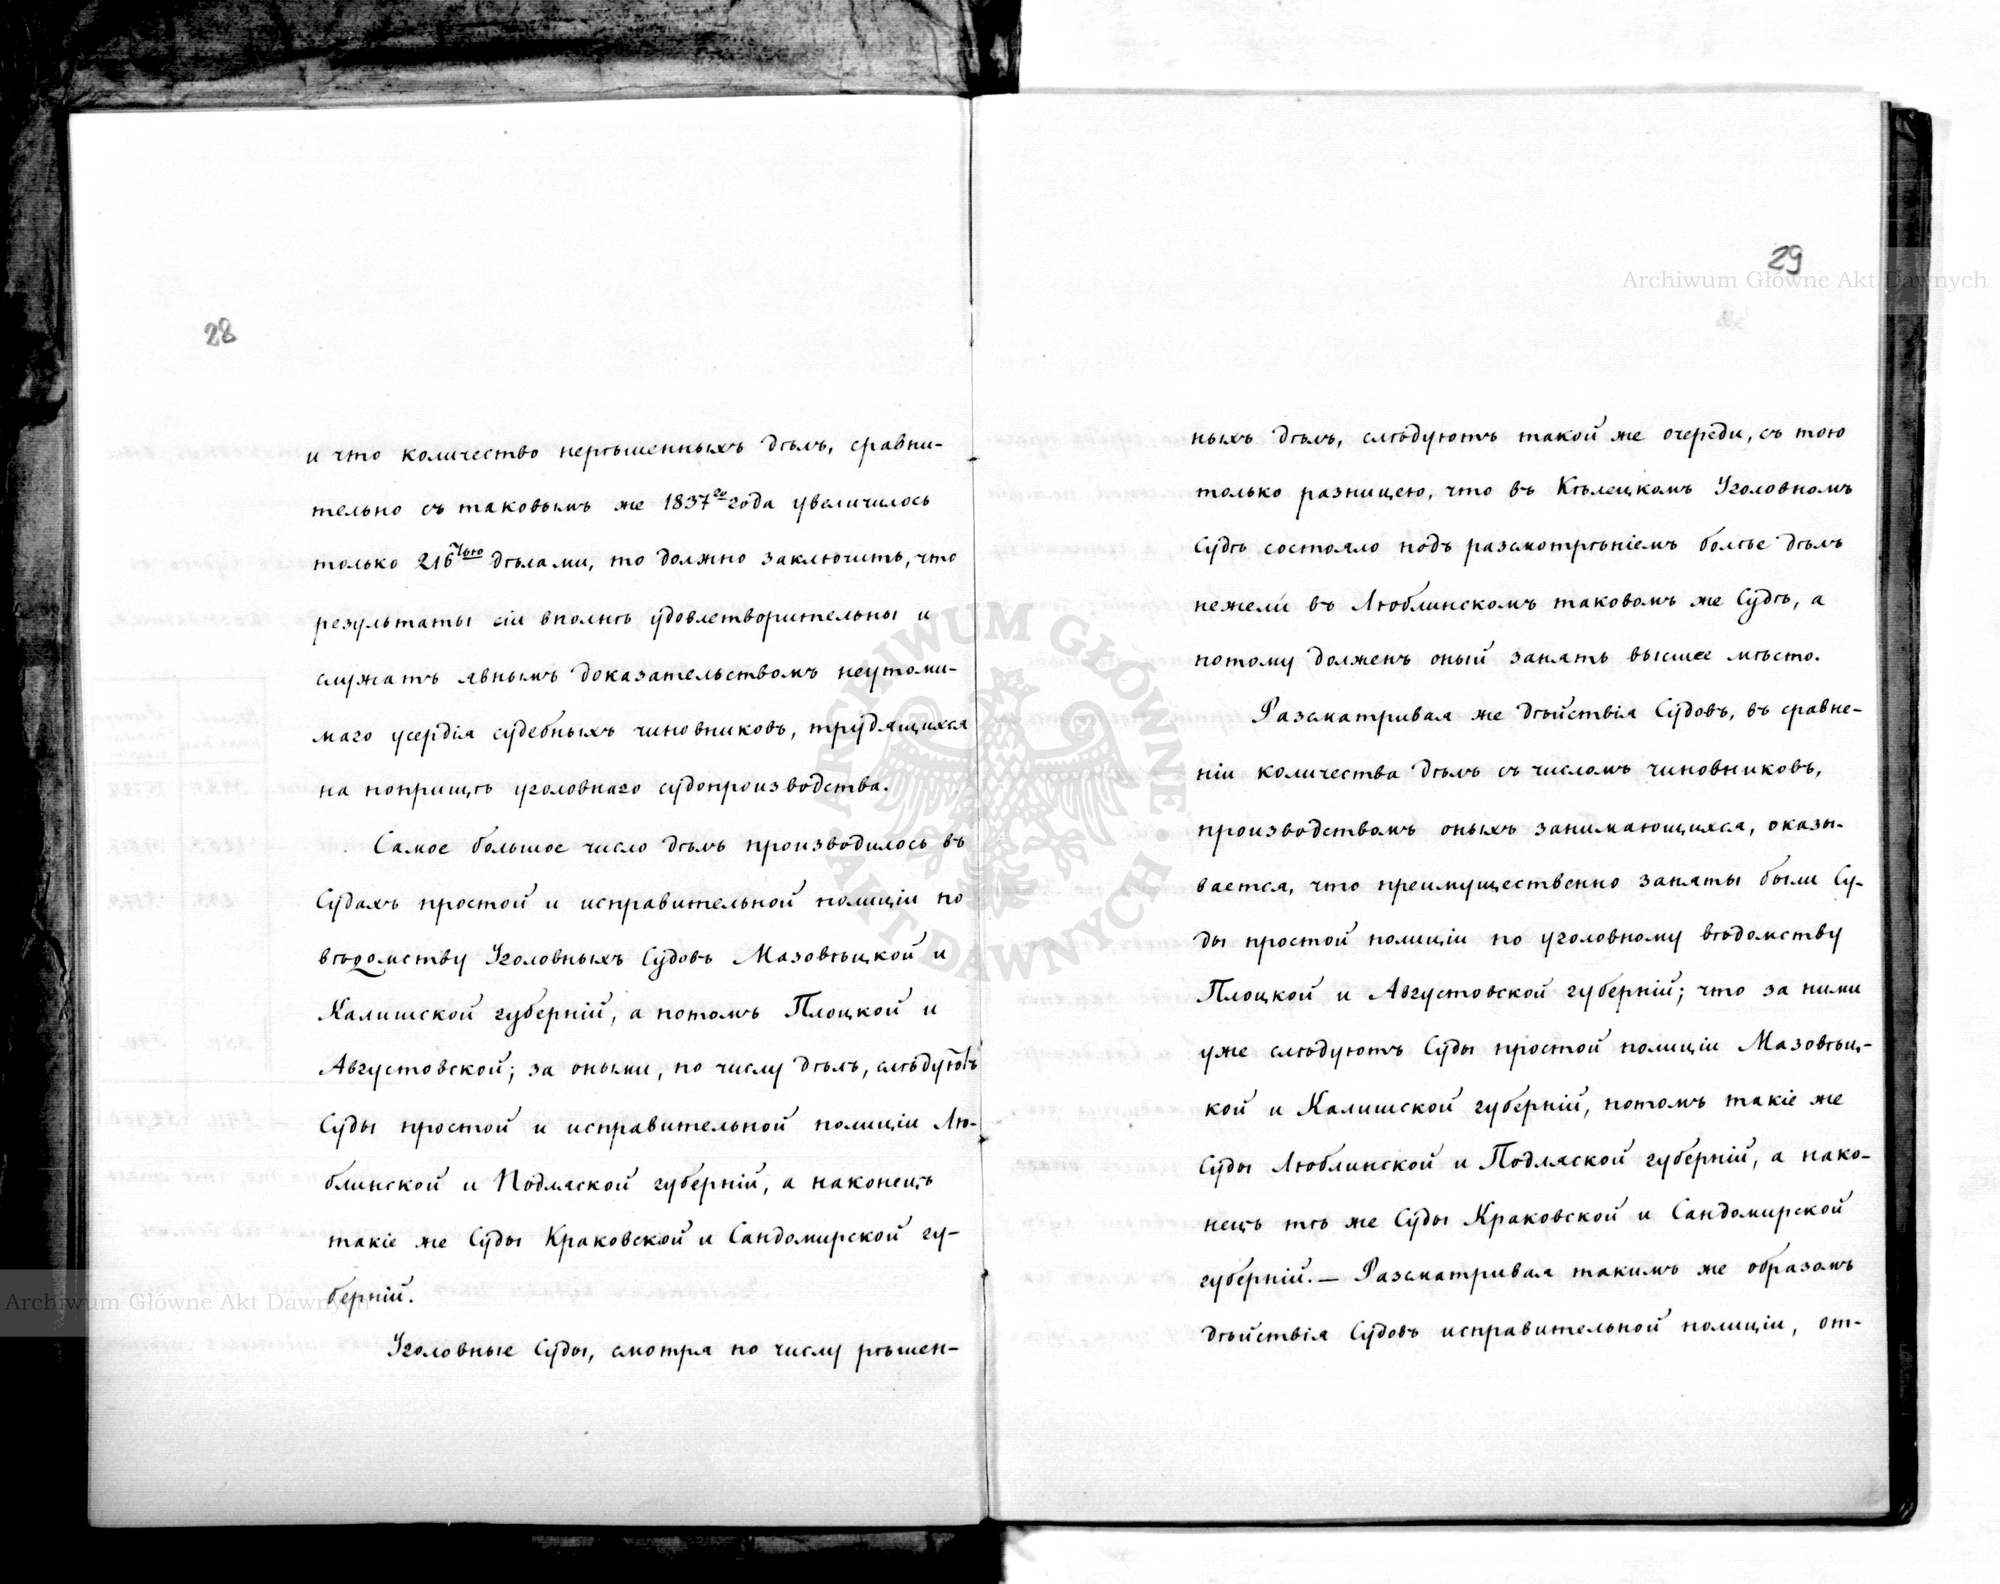 28
и что количество нерѣшенныхъ дѣлъ, сравни-
тельно съ таковымъ же 1837го года увеличилось
только 216тью дѣлами, то должно заключить, что
результаты сіи вполнѣ удовлетворительны и
служатъ явнымъ доказательствомъ неутоми-
маго усердія судебныхъ чиновниковъ, трудящихся
на поприщѣ уголовнаго судопроизводства.
Самое большое число дѣлъ производилось въ
Судахъ простой и исправительной полиціи по
вѣдомству Уголовныхъ Судовъ Мазовѣцкой и
Калишской губерній, а потомъ Плоцкой и
Августовской; за оными, по числу дѣлъ, слѣдуютъ
Суды простой и исправительной полиціи Лю-
блинской и Подляской губерній, а наконецъ
такіе же Суды Краковской и Сандомирской гу-
берній.
Уголовные Суды, смотря по числу рѣшен-
29
ныхъ дѣлъ, слѣдуютъ такой же очереди, съ тою
только разницею, что въ Кѣлецкомъ Уголовномъ
Судѣ состояло подъ разсмотрѣніемъ болѣе дѣлъ
нежели въ Люблинскомъ таковомъ же Судѣ, а
потому долженъ оный занять высшее мѣсто.
Разсматривая же дѣйствія Судовъ, въ сравне-
ніи количества дѣлъ съ числомъ чиновниковъ,
производствомъ оныхъ занимающихся, оказы-
вается, что преимущественно заняты были Су-
ды простой полиціи по уголовному вѣдомству
Плоцкой и Августовской губерній; что за ними
уже слѣдуютъ Суды простой полиціи Мазовѣц-
кой и Калишской губерній, потомъ такіе же
Суды Люблинской и Подляской губерній, а нако-
нецъ тѣ же Суды Краковской и Сандомирской
губерній. — Разсматривая такимъ же образомъ
дѣйствія Судовъ исправительной полиціи, от-
Archiwum Główne Akt Dawnych
Archiwum Główne Akt Dawnych
ARCHIWUM GŁÓWNE AKT DAWNYCH